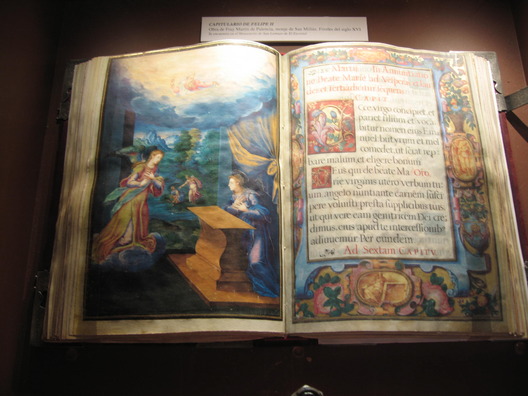 CAPITULARIO DE FELIPE II
Obra de Fray Martín de Palencia, monje de San Millán. Finales del siglo XVI
Beate Marie ad Vesperas
CAPIT
Ecce virgo concipiet, et
pariet filium et voca
bitur nomen eius Ema
nuel butyrum et mel
comedet, ut sciat rep
bare malum, et eligere bonum
Deus qui de beate Ma Oro.
rie virginis utero verbum tu
um, angelo nuntiante carnem susci
pere voluisti, presta supplicibus tuis
ut qui vere eam genitricem Dei cre
dimus, eius apud te
adiuvemur. Per eundem
Ad Sextam CAPIT.